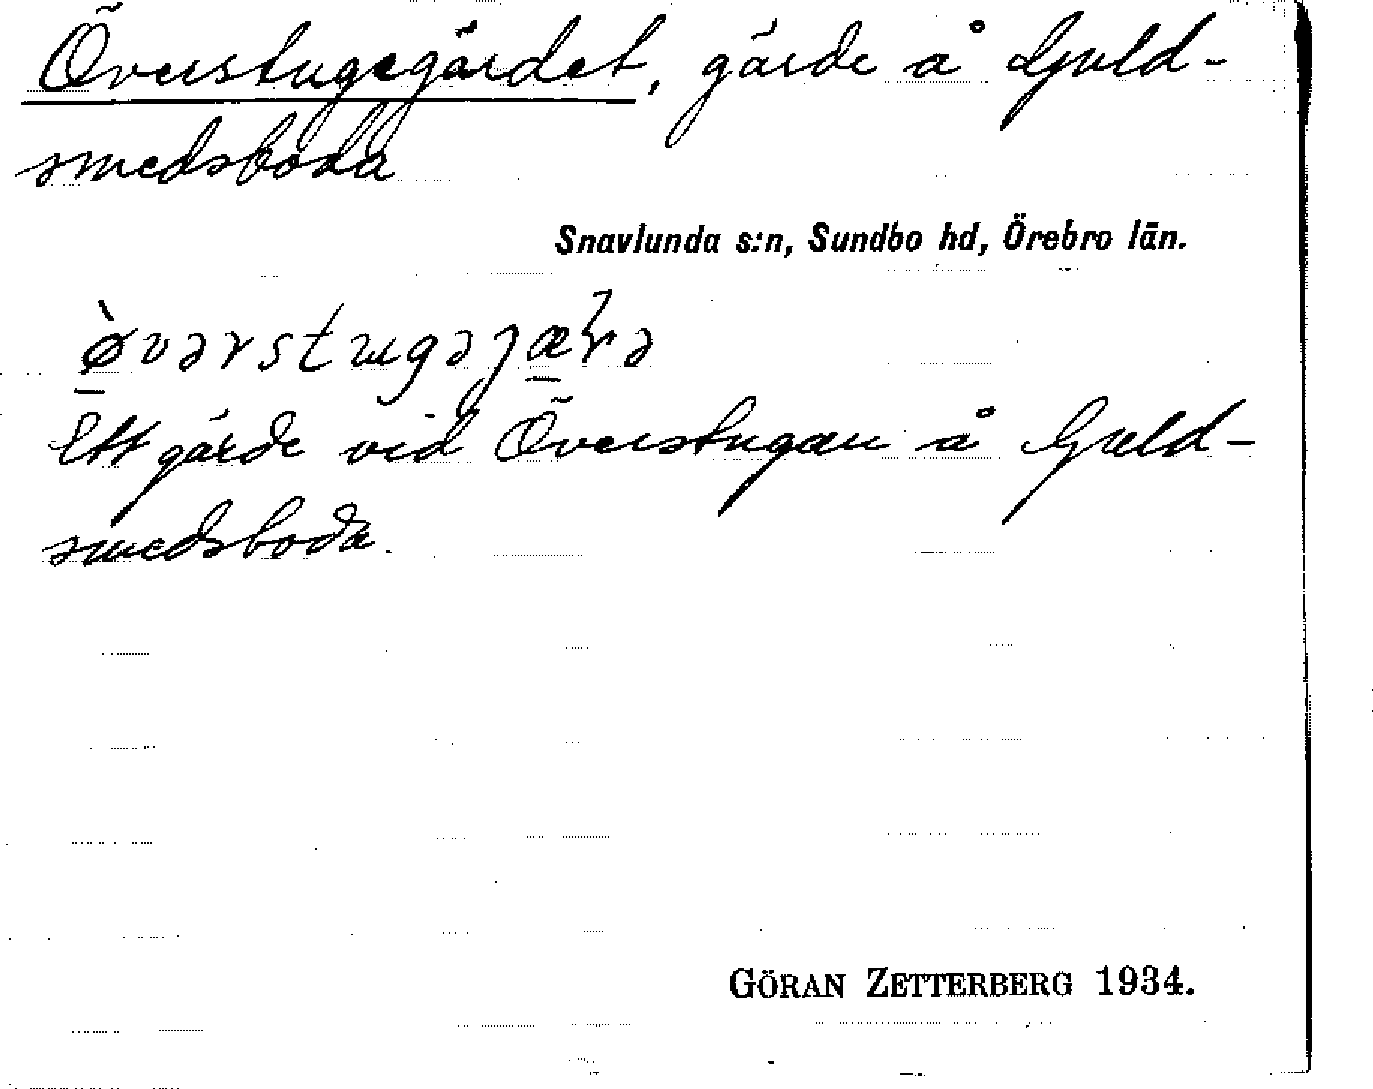 Överstugegärdet, gärde å Guld-
smedsboda
Snavlunda s:n, Sundbo hd, Örebro län.
ø̀vərstugəjæ̠ɽə
Ett gärde vid Överstugan å Guld-
smedsboda.
GÖRAN ZETTERBERG 1934.